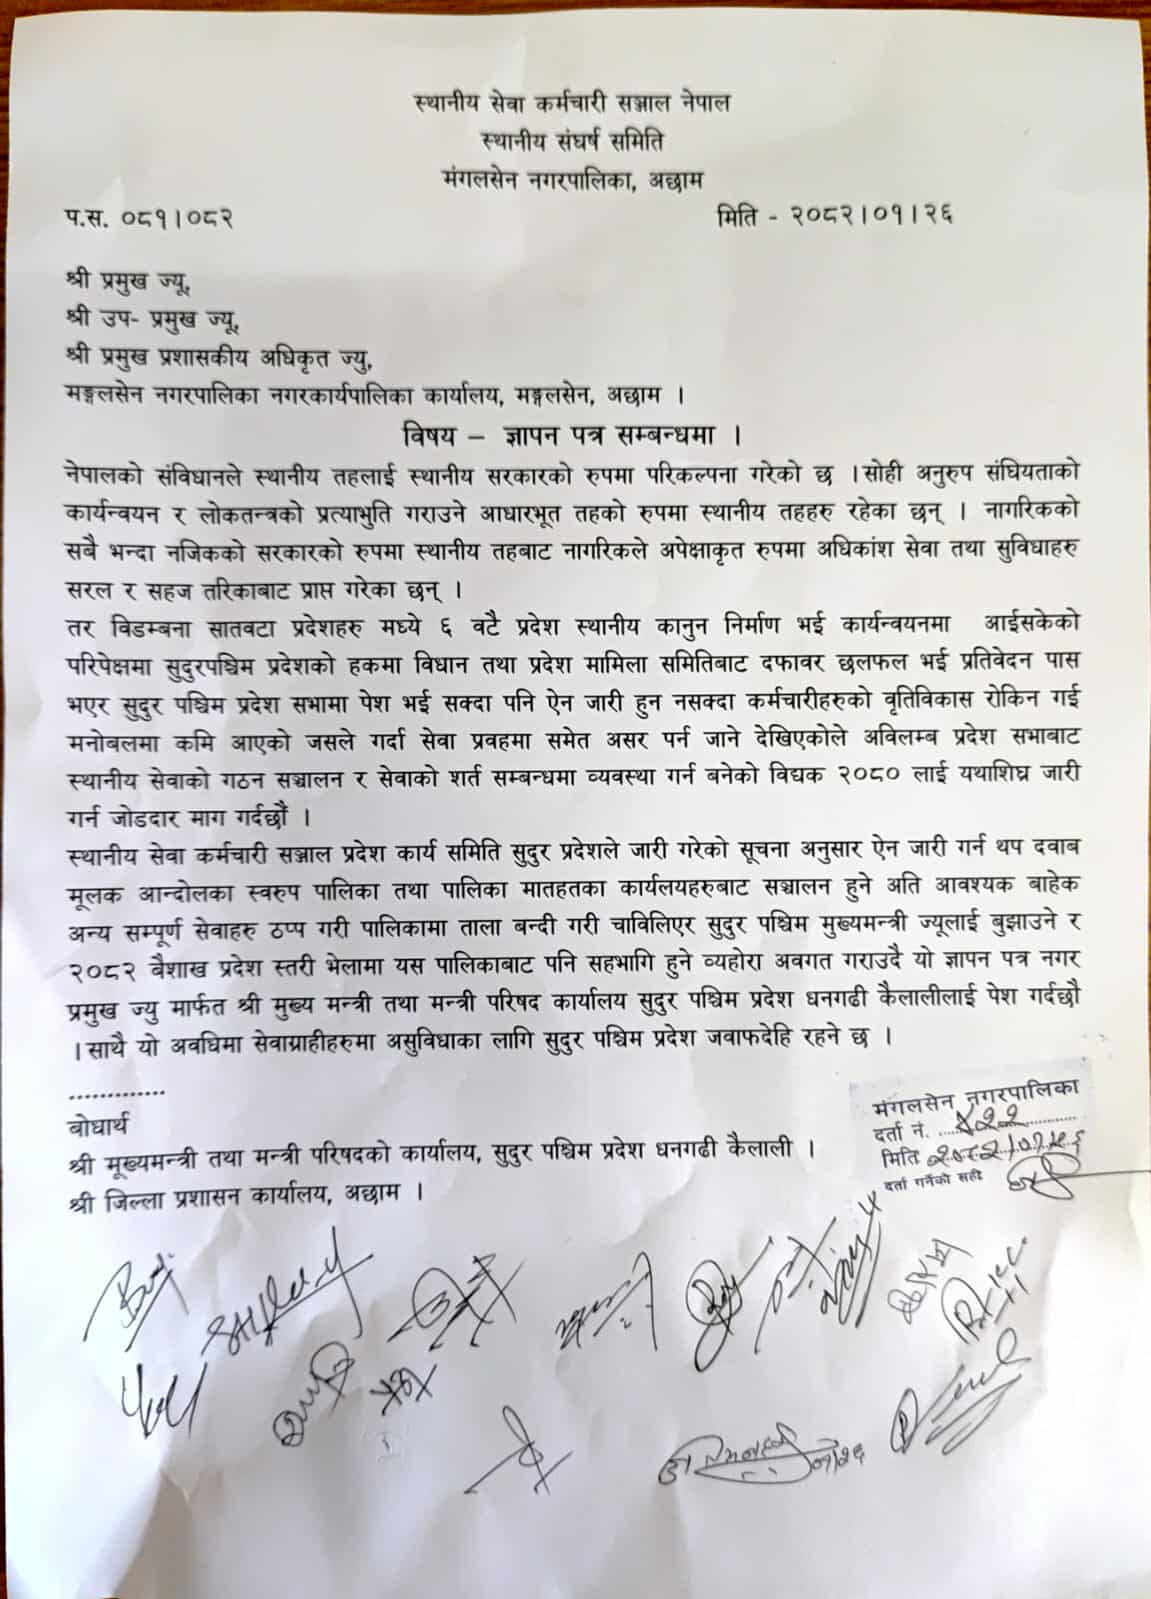 स्थानीय सेवा कर्मचारी सञ्जाल नेपाल
स्थानीय संघर्ष समिति
मंगलसेन नगरपालिका, अछाम
प.स. ०८१।०८२
मिति - २०८२।०१।२६
श्री प्रमुख ज्यू,
श्री उप- प्रमुख ज्यू,
श्री प्रमुख प्रशासकीय अधिकृत ज्यु,
मङ्गलसेन नगरपालिका नगरकार्यपालिका कार्यालय, मङ्गलसेन, अछाम ।
विषय – ज्ञापन पत्र सम्बन्धमा ।
नेपालको संविधानले स्थानीय तहलाई स्थानीय सरकारको रुपमा परिकल्पना गरेको छ ।सोही अनुरुप संघियताको
कार्यन्वयन र लोकतन्त्रको प्रत्याभुति गराउने आधारभूत तहको रुपमा स्थानीय तहहरु रहेका छन् । नागरिकको
सबै भन्दा नजिकको सरकारको रुपमा स्थानीय तहबाट नागरिकले अपेक्षाकृत रुपमा अधिकांश सेवा तथा सुविधाहरु
सरल र सहज तरिकाबाट प्राप्त गरेका छन् ।
तर विडम्बना सातवटा प्रदेशहरु मध्ये ६ वटै प्रदेश स्थानीय कानुन निर्माण भई कार्यन्वयनमा आईसकेको
परिपेक्षमा सुदुरपश्चिम प्रदेशको हकमा विधान तथा प्रदेश मामिला समितिबाट दफावर छलफल भई प्रतिवेदन पास
भएर सुदुर पश्चिम प्रदेश सभामा पेश भई सक्दा पनि ऐन जारी हुन नसक्दा कर्मचारीहरुको वृतिविकास रोकिन गई
मनोबलमा कमि आएको जसले गर्दा सेवा प्रवहमा समेत असर पर्न जाने देखिएकोले अविलम्ब प्रदेश सभाबाट
स्थानीय सेवाको गठन सञ्चालन र सेवाको शर्त सम्बन्धमा व्यवस्था गर्न बनेको विद्यक २०८० लाई यथाशिघ्र जारी
गर्न जोडदार माग गर्दछौं ।
स्थानीय सेवा कर्मचारी सञ्जाल प्रदेश कार्य समिति सुदुर प्रदेशले जारी गरेको सूचना अनुसार ऐन जारी गर्न थप दवाब
मूलक आन्दोलका स्वरुप पालिका तथा पालिका मातहतका कार्यलयहरुबाट सञ्चालन हुने अति आवश्यक बाहेक
अन्य सम्पूर्ण सेवाहरु ठप्प गरी पालिकामा ताला बन्दी गरी चाविलिएर सुदुर पश्चिम मुख्यमन्त्री ज्यूलाई बुझाउने र
२०८२ बैशाख प्रदेश स्तरी भेलामा यस पालिकाबाट पनि सहभागि हुने व्यहोरा अवगत गराउदै यो ज्ञापन पत्र नगर
प्रमुख ज्यु मार्फत श्री मुख्य मन्त्री तथा मन्त्री परिषद कार्यालय सुदुर पश्चिम प्रदेश धनगढी कैलालीलाई पेश गर्दछौ
।साथै यो अवधिमा सेवाग्राहीहरुमा असुविधाका लागि सुदुर पश्चिम प्रदेश जवाफदेहि रहने छ ।
.............
बोधार्थ
श्री मूख्यमन्त्री तथा मन्त्री परिषदको कार्यालय, सुदुर पश्चिम प्रदेश धनगढी कैलाली ।
श्री जिल्ला प्रशासन कार्यालय, अछाम ।
मंगलसेन नगरपालिका
दर्ता नं.
मिति २०८२।०१।२६
दर्ता गर्नेको सही